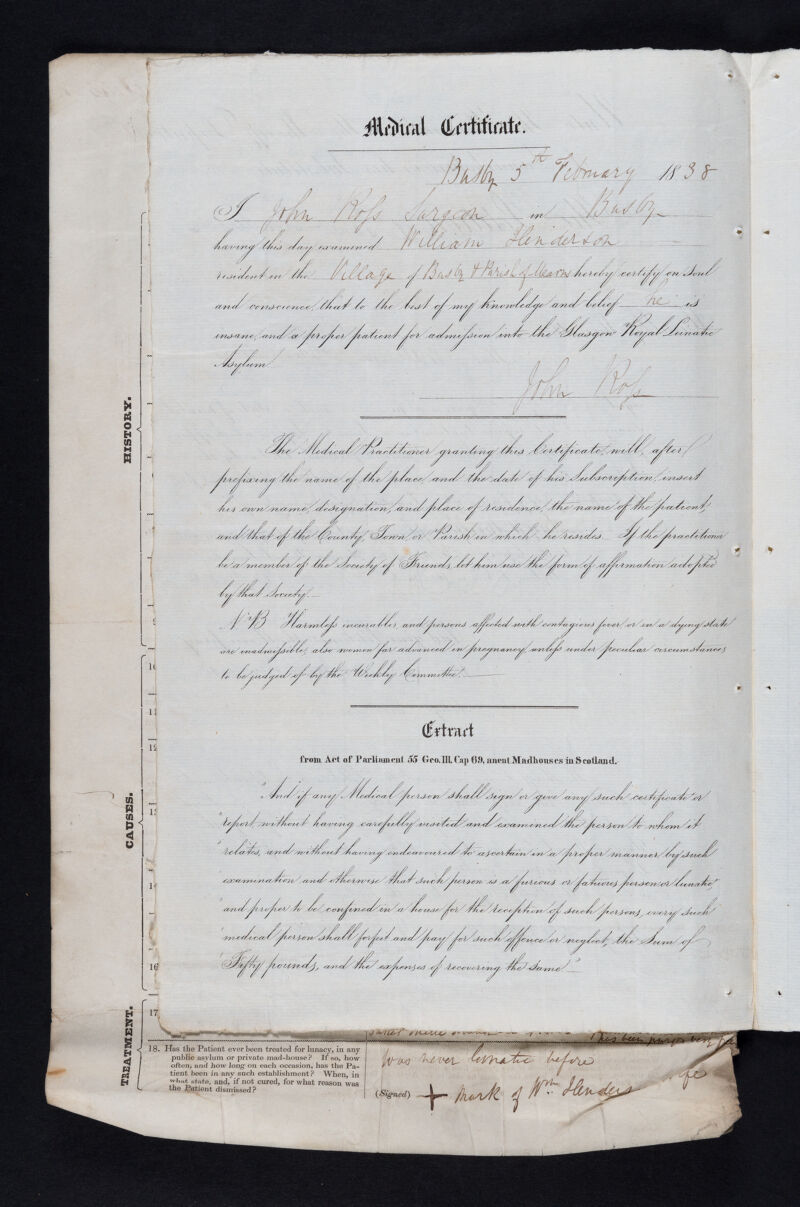 Medical Certificate.
Busby 5th February 1838
I John Ross Surgeon in Busby
having this day examined William Henderson
resident in the Village of Busby & Parish of Mearns hereby certify on soul
and conscience, that to the best of my knowledge and belief he is
insane, and a proper patient for admission into the Glasgow Royal Lunatic
Asylum.
John Ross
The Medical Practitioner granting this Certificate, will, after
prefixing the name of the place, and the date of his Subscription, insert
his own name, designation, and place of residence, the name of the patient,
and that of the County, Town or Parish in which he resides. If the practitioner
be a member of the Society of Friends, let him use the form of affirmation adopted
by that Society.
N.B. Harmless incurables, and persons affected with contagious fever or in a dying state
are inadmissible, also women far advanced in pregnancy unless under peculiar circumstances
to be judged of by the Weekly Committee.
Extract
from Act of Parliament 55 Geo. III. Cap 69, anent Madhouses in Scotland.
"And if any Medical person shall sign or give any such certificate or
"report, without having carefully visited and examined the person to whom it
"relates, and without having endeavoured to ascertain in a proper manner by such
"examination and otherwise that such person is a furious or fatuous person or lunatic
"and proper to be confined in a house for the reception of such persons, every such
"medical person shall forfeit and pay for such offence or neglect, the Sum of
"Fifty pounds, and the expenses of recovering the same."
HISTORY.
CAUSES.
TREATMENT.
17
18. Has the Patient ever been treated for lunacy, in any
public asylum or private mad-house? If so, how
often, and how long on each occasion, has the Pa-
tient been in any such establishment? When, in
what state, and, if not cured, for what reason was
the Patient dismissed?
was never lunatic before
(Signed) + mark of Wm. Henders wife